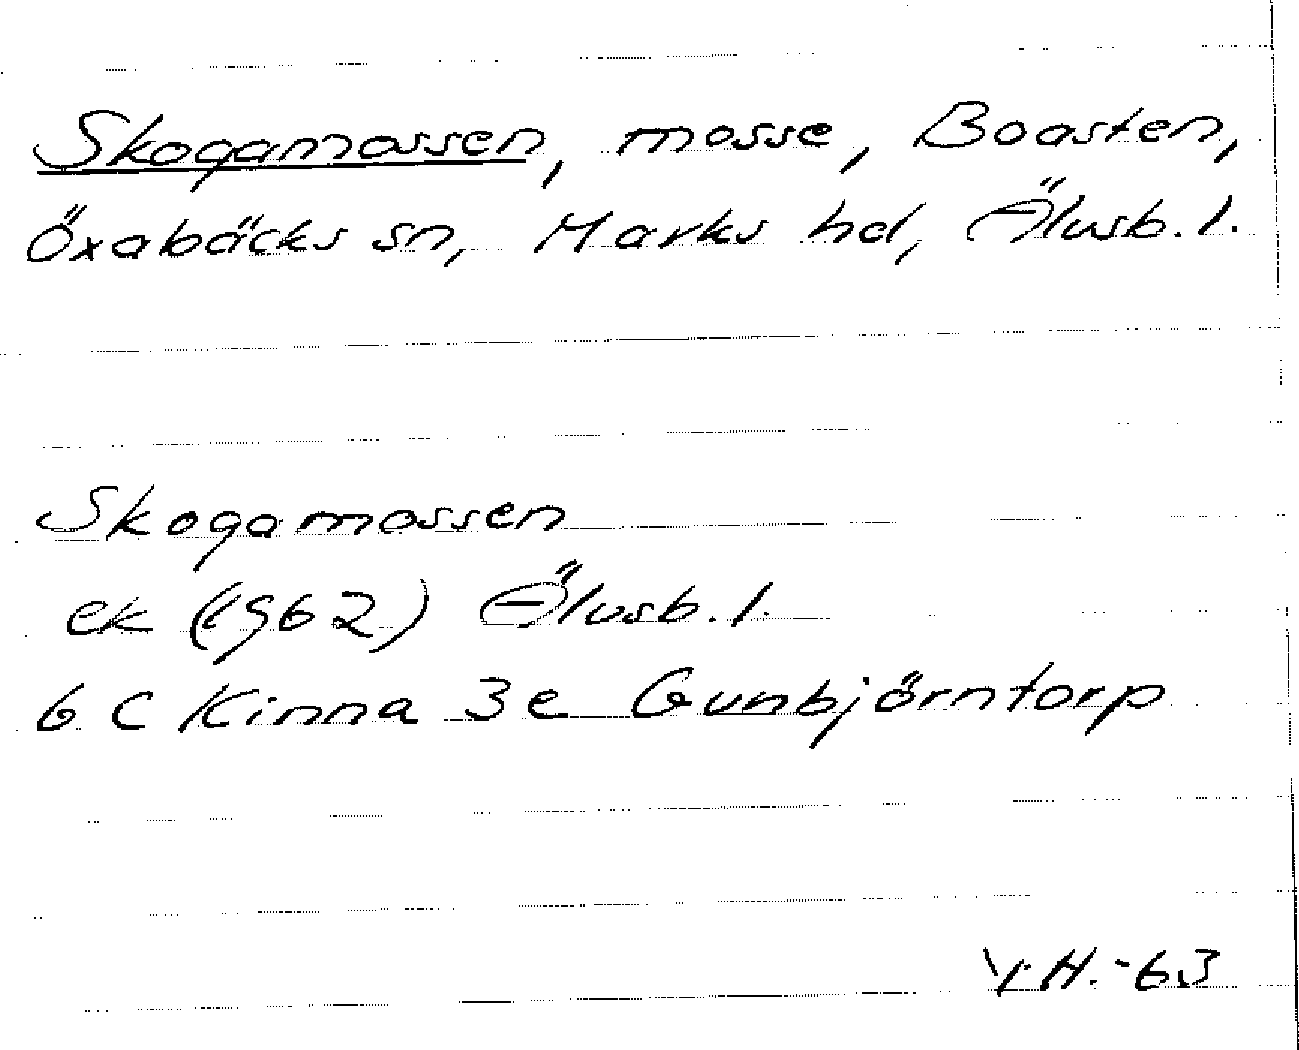 Skogamossen, mosse, Boasten,
Öxabäcks sn, Marks hd, Älvsb. l.
Skogamossen
ek (1962) Älvsb. l.
6 C Kinna 3e Gunbjörntorp
Y.H.-63